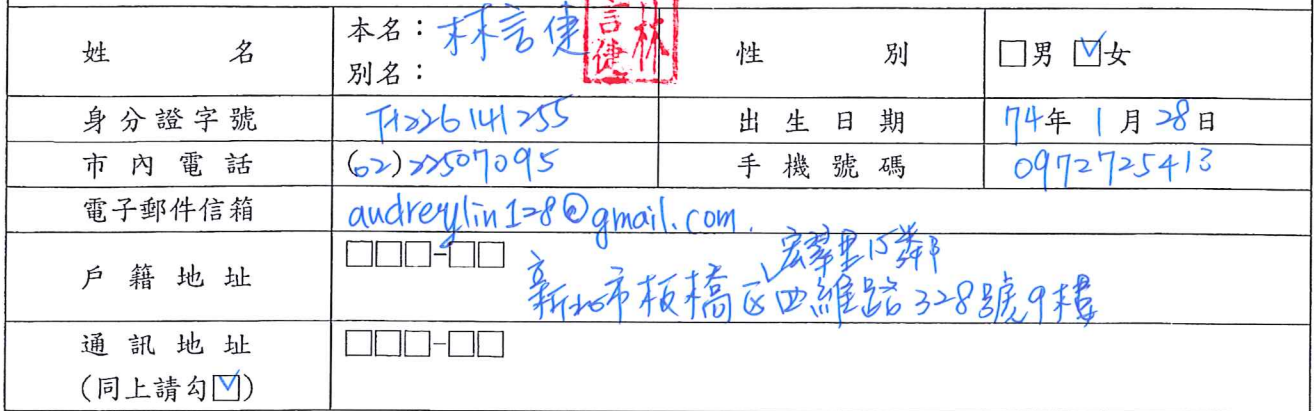 姓名 本名：林言倢 言倢 林 性別 □男 ☑女
別名：
身分證字號 H226141255 出生日期 74年1月28日
市內電話 (02)22507095 手機號碼 0972725413
電子郵件信箱 audreylin128@gmail.com
戶籍地址 □□□-□□
宏翠里15鄰
新北市板橋區四維路328號9樓
通訊地址 □□□-□□
(同上請勾☑)